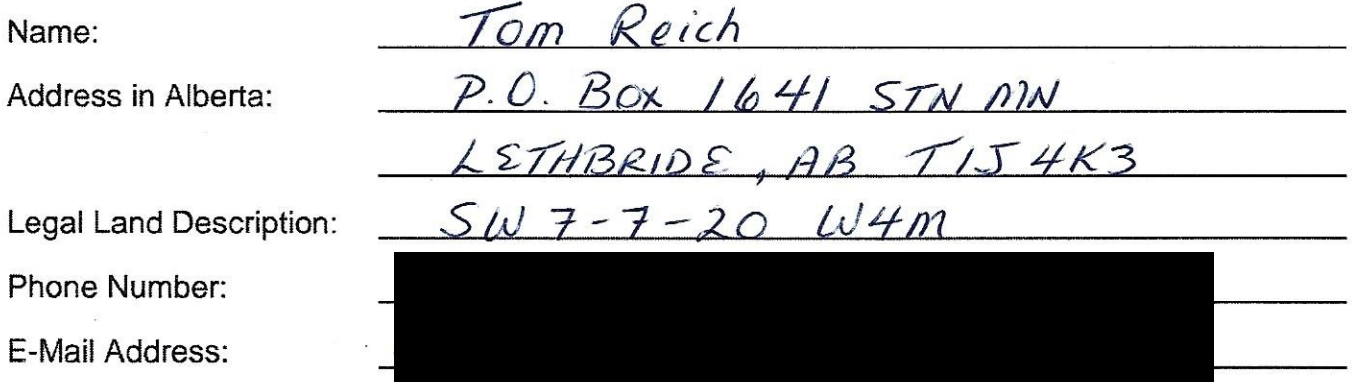 Name: Tom Reich
Address in Alberta: P.O. Box 1641 STN MN
LETHBRIDE, AB T1J 4K3
Legal Land Description: SW 7-7-20 W4M
Phone Number:
E-Mail Address: